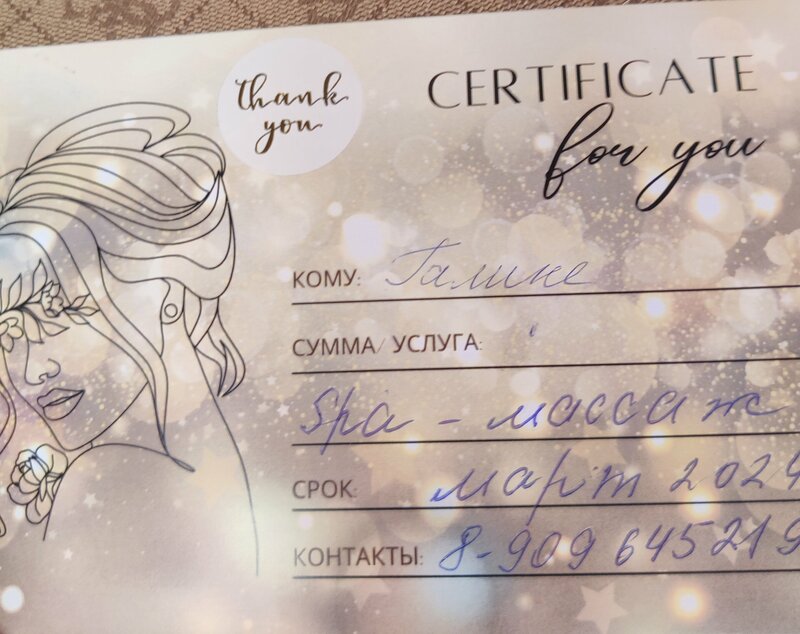 thank
you
CERTIFICATE
for you
КОМУ: Галине
СУММА/ УСЛУГА:
Spa - массаж
СРОК: март 2024
КОНТАКТЫ: 8-909 645219